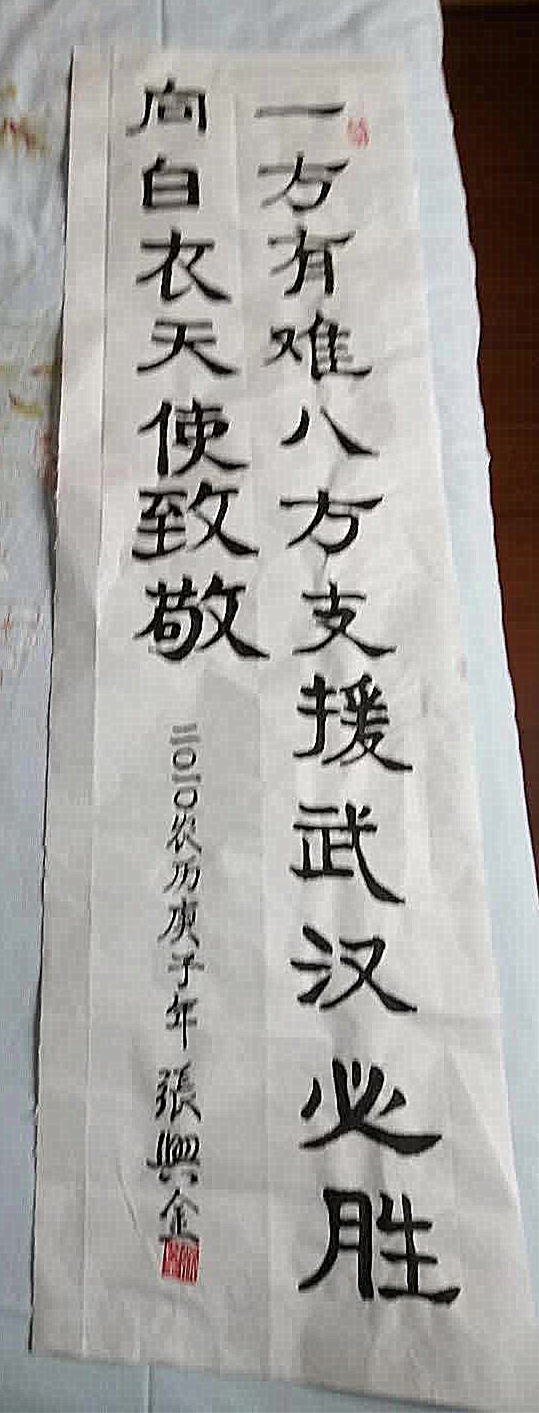 一方有难八方支援武汉必胜
向白衣天使致敬
二〇二〇农历庚子年 張興金